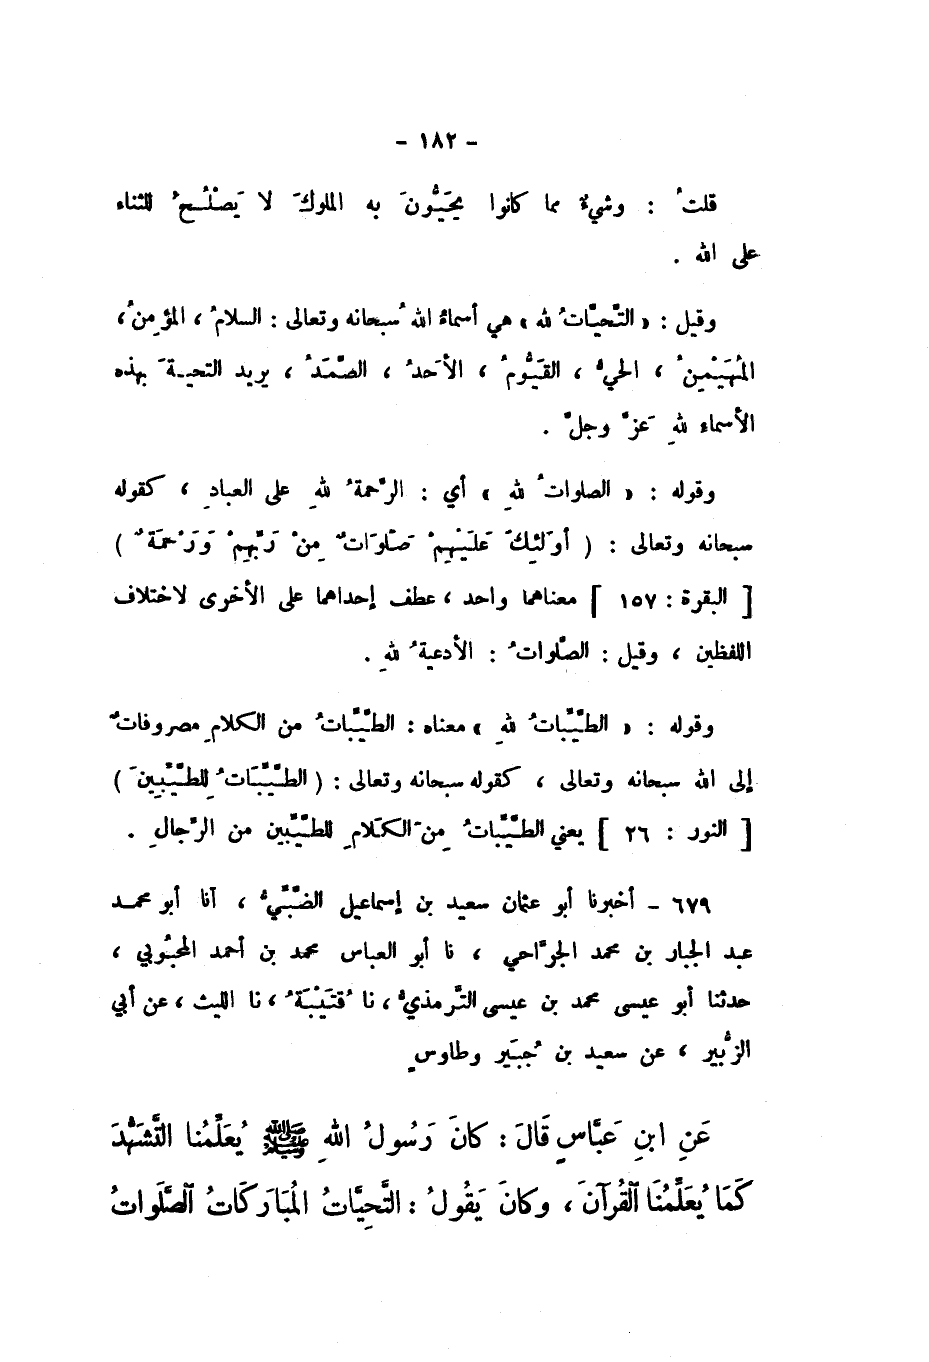 - ١٨٢ -
قلتُ : وشيءٌ مما كانوا يُحَيُّونَ به الملوكَ لا يَصْلُـحُ للثناء
على الله .
وقيل : « التَّحيَّاتُ لله » هي أسماءُ الله سُبحانه وتعالى : السلامُ ، المؤمِنُ ،
المُهَيْمِنُ ، الحيُّ ، القَيُّومُ ، الأَحدُ ، الصَّمَدُ ، يريد التحيـةَ بهذه
الأسماء للهِ عَزَّ وجلَّ .
وقوله : « الصلواتُ للهِ » أي : الرَّحمةُ للهِ على العبادِ ، كقوله
سبحانه وتعالى : ( أُولَئِكَ عَلَيْهِمْ صَلَوَاتٌ مِنْ رَبِّهِمْ وَرَحْمَةٌ )
[ البقرة : ١٥٧ ] معناهما واحد ، عطف إحداهما على الأخرى لاختلاف
اللفظين ، وقيل : الصَّلواتُ : الأدعيةُ للهِ .
وقوله : « الطَّيِّباتُ للهِ » معناه : الطَّيِّباتُ من الكلامِ مصروفاتٌ
إلى الله سبحانه وتعالى ، كقوله سبحانه وتعالى : ( الطَّيِّبَاتُ لِلطَّيِّبِينَ )
[ النور : ٢٦ ] يعني الطَّيِّباتُ مِنَ الكَلامِ للطَّيِّبين من الرِّجالِ .
٦٧٩ - أخبرنا أبو عثمان سعيد بن إسماعيل الضَّبِّيُّ ، أنا أبو محمـد
عبد الجبار بن محمد الجرَّاحي ، نا أبو العباس محمد بن أحمد المحبُوبي ،
حدثنا أبو عيسى محمد بن عيسى التِّرمذيُّ ، نا قُتَيْبَةُ ، نا الليث ، عن أبي
الزُّبير ، عن سعيد بن جُبَير وطاوسٍ
عَنِ ابنِ عَبَّاسٍ قَالَ : كانَ رَسُولُ اللهِ ﷺ يُعَلِّمُنا التَّشَهُّدَ
كَمَا يُعَلِّمُنَا القُرآنَ ، وكانَ يَقُولُ : التَّحِيَّاتُ المُبَارَكَاتُ الصَّلَواتُ